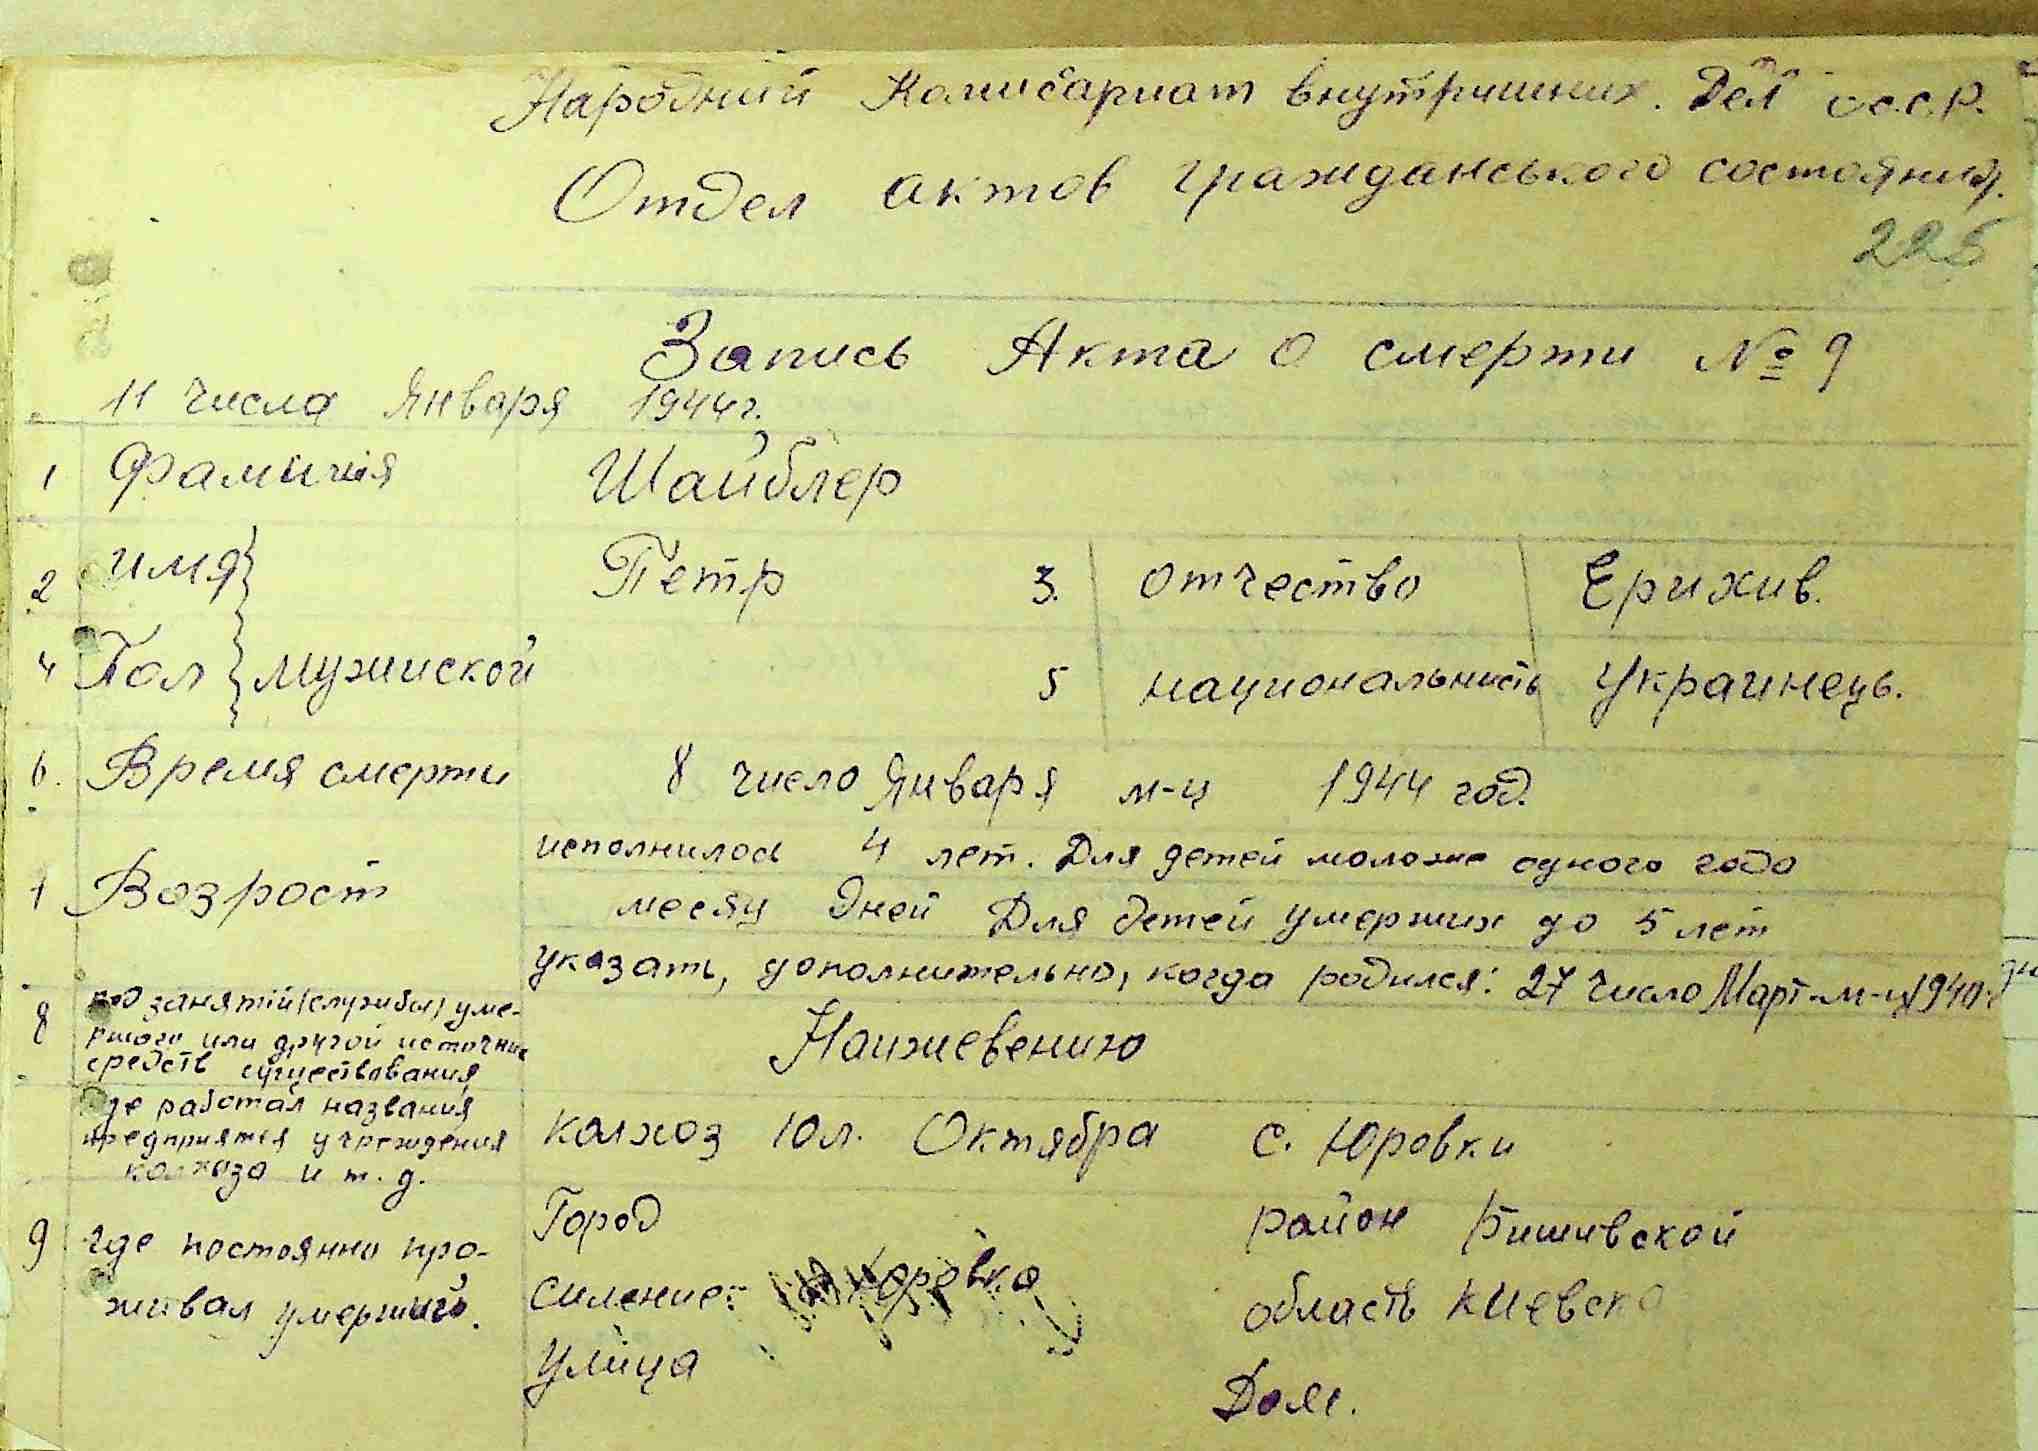 Народний Комисариат внутришних. Дел С.С.С.Р.
Отдел актов гражданського состояния.
225
Запись Акта о смерти № 9
11 числа Января 1944 г.
1 Фамилия Шайблер
2 имя Петр 3. отчество Ерихив.
4 Пол мужнской 5 национальность Украинець.
6. Время смерти 8 число Января м-ц 1944 год.
исполнилось 4 лет. Для детей моложе одного года
Возрост месяц дней Для детей умерших до 5 лет
указать, дополнительно, когда родился: 27 число Март-м-ц 1940
8 род занятий (службы) уме-
ршого или другой источник
средств существования
Наижевению
где работал названия
предприятея учреждения
колхоза и т. д.
колхоз 10л. Октября с. Юровки
9 где постоянно про-
живал умерший.
Город район Бишивской
Силение: Юровка область Киевска
Улица Дом.